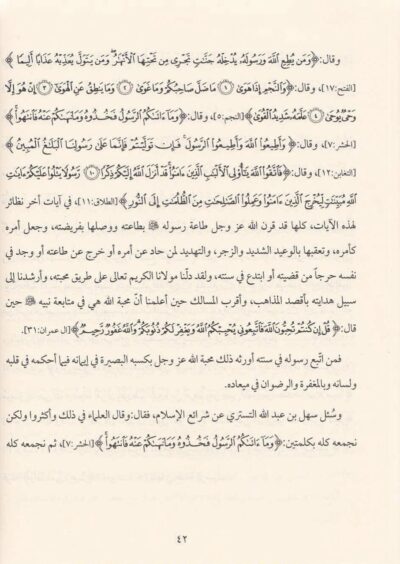 وقال:﴿وَمَن يُطِعِ اللَّهَ وَرَسُولَهُ يُدْخِلْهُ جَنَّاتٍ تَجْرِي مِن تَحْتِهَا الْأَنْهَارُ وَمَن يَتَوَلَّ يُعَذِّبْهُ عَذَابًا أَلِيمًا﴾
[الفتح:١٧]، وقال:﴿وَالنَّجْمِ إِذَا هَوَىٰ ١ مَا ضَلَّ صَاحِبُكُمْ وَمَا غَوَىٰ ٢ وَمَا يَنطِقُ عَنِ الْهَوَىٰ ٣ إِنْ هُوَ إِلَّا
وَحْيٌ يُوحَىٰ ٤ عَلَّمَهُ شَدِيدُ الْقُوَىٰ﴾[النجم:٥]، وقال:﴿وَمَا آتَاكُمُ الرَّسُولُ فَخُذُوهُ وَمَا نَهَاكُمْ عَنْهُ فَانتَهُوا﴾
[الحشر:٧]، وقال:﴿وَأَطِيعُوا اللَّهَ وَأَطِيعُوا الرَّسُولَ فَإِن تَوَلَّيْتُمْ فَإِنَّمَا عَلَىٰ رَسُولِنَا الْبَلَاغُ الْمُبِينُ﴾
[التغابن:١٢]، وقال:﴿فَاتَّقُوا اللَّهَ يَا أُولِي الْأَلْبَابِ الَّذِينَ آمَنُوا قَدْ أَنزَلَ اللَّهُ إِلَيْكُمْ ذِكْرًا ١٠ رَسُولًا يَتْلُو عَلَيْكُمْ آيَاتِ
اللَّهِ مُبَيِّنَاتٍ لِيُخْرِجَ الَّذِينَ آمَنُوا وَعَمِلُوا الصَّالِحَاتِ مِنَ الظُّلُمَاتِ إِلَى النُّورِ﴾[الطلاق:١١]، في آيات أخر نظائر
لهذه الآيات، كلها قد قرن الله عز وجل طاعة رسوله ﷺ بطاعته ووصلها بفريضته، وجعل أمره
كأمره، وتعقبها بالوعيد الشديد والزجر، والتهديد لمن حاد عن أمره أو خرج عن طاعته أو وجد في
نفسه حرجاً من قضيته أو ابتدع في سنته، ولقد دلّنا مولانا الكريم تعالى على طريق محبته، وأرشدنا إلى
سبيل هدايته بأقصد المذاهب، وأقرب المسالك حين أعلمنا أنّ محبة الله هي في متابعة نبيه ﷺ حين
قال:﴿قُلْ إِن كُنتُمْ تُحِبُّونَ اللَّهَ فَاتَّبِعُونِي يُحْبِبْكُمُ اللَّهُ وَيَغْفِرْ لَكُمْ ذُنُوبَكُمْ وَاللَّهُ غَفُورٌ رَّحِيمٌ﴾[آل عمران:٣١].
فمن اتّبع رسوله في سنته أورثه ذلك محبة الله عز وجل بكسبه البصيرة في إيمانه فيما أحكمه في قلبه
ولسانه وبالمغفرة والرضوان في ميعاده.
وسُئل سهل بن عبد الله التستري عن شرائع الإسلام، فقال:وقال العلماء في ذلك وأكثروا ولكن
نجمعه كله بكلمتين:﴿وَمَا آتَاكُمُ الرَّسُولُ فَخُذُوهُ وَمَا نَهَاكُمْ عَنْهُ فَانتَهُوا﴾[الحشر:٧]، ثم نجمعه كله
٤٢